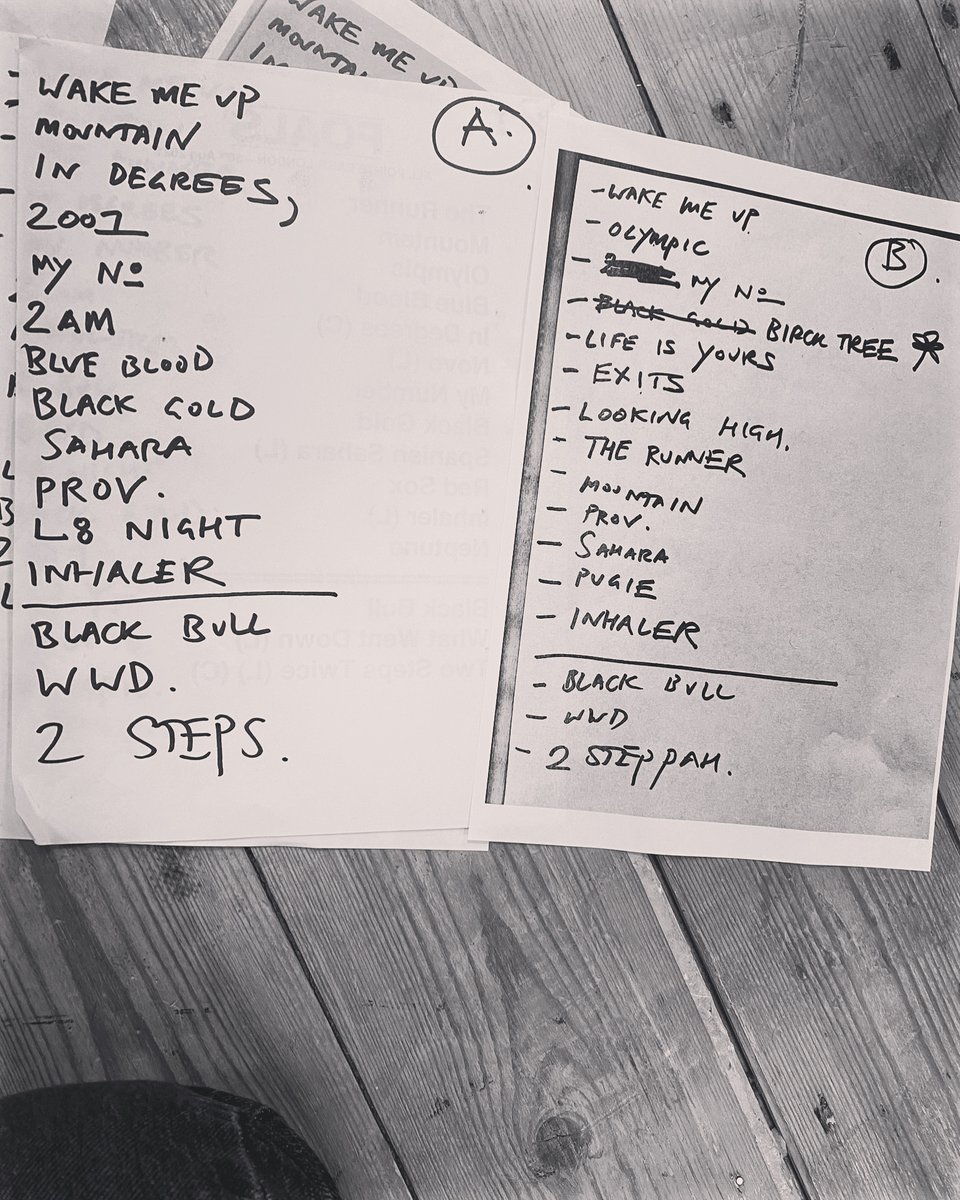 WAKE ME UP
MOUNTAIN
IN
WAKE ME UP
MOUNTAIN
IN DEGREES,
2001
MY Nº
2AM
BLUE BLOOD
BLACK GOLD
SAHARA
PROV.
L8 NIGHT
INHALER
BLACK BULL
WWD.
2 STEPS.
A.
- WAKE ME UP
- OLYMPIC
- MY Nº
- BLACK GOLD BIRCH TREE
- LIFE IS YOURS
- EXITS
- LOOKING HIGH.
- THE RUNNER
- MOUNTAIN
- PROV.
- SAHARA
- PUGIE
- INHALER
- BLACK BULL
- WWD
- 2 STEPPAH.
B.
FOALS
The Runner
Mountain
Olympic
Blue Blood
In Degrees (C)
My Number
Black Gold
Spanish Sahara (L)
Red Sox
Inhaler (L)
Neptune
Black Bull
What Went Down (L)
Two Steps Twice (L) (C)